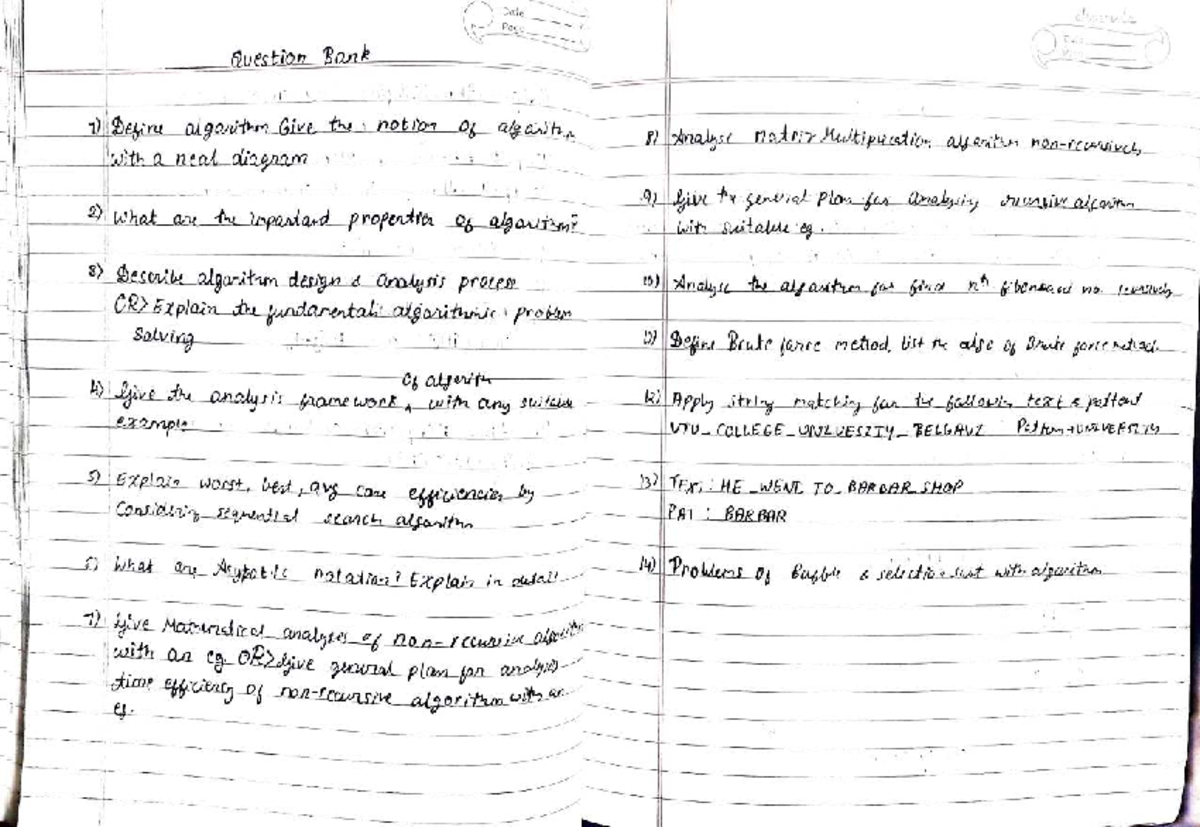 Date
Page
Question Bank
1) Define algorithm Give the notion of algorithm
with a neat diagram
2) What are the important properties of algorithm?
3) Describe algorithm design & analysis process
OR> Explain the fundamentals algorithmic problem
Solving
of algorithm
4) Give the analysis framework, with any suitable
example
5) Explain worst, best, avg case efficiencies by
Considering sequential search algorithm
What are Asypotic notation? Explain in detail
7) Give Mathematical analyses of non-recursive algorithm
with an eg. OR> Give general plan for analysis
time efficiency of non-recursive algorithm with an
eg.
8) Analyse matrix Multiplication algorithm non-recursively
9) Give the general plan for analysing recursive algorithm
with suitable eg.
10) Analyse the algorithm for find nth fibonacci no.
Define Brute force method, List the of Brute force method
12) Apply string matching for the following text & pattern
VTU_COLLEGE_UNIVERSITY_BELGAVI Pattern → UNIVERSITY
13) TEXT: HE_WENT TO_BARBAR_SHOP
PAT : BARBAR
14) Problems of Bubble & selection sort with algorithm